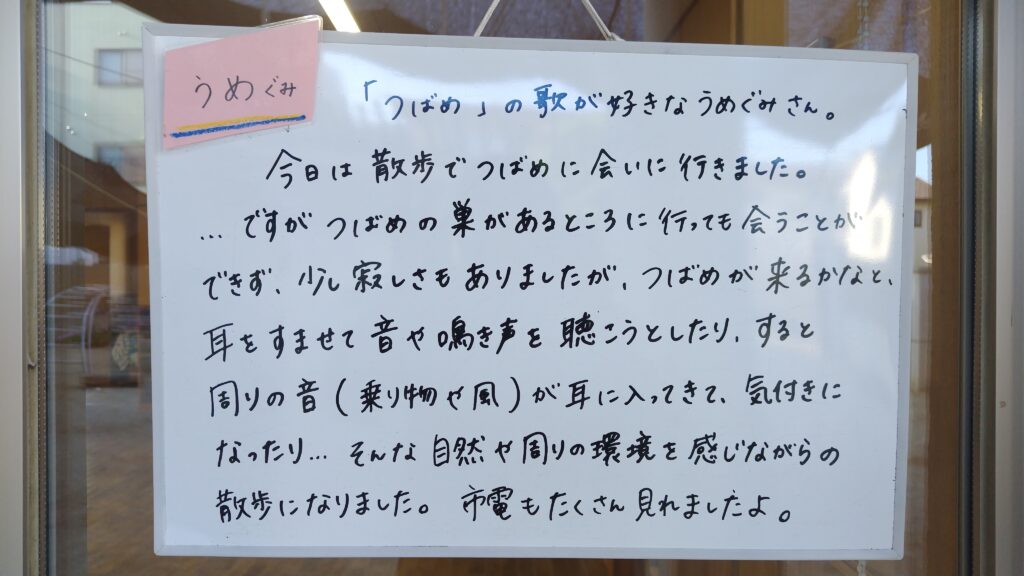 うめぐみ
「つばめ」の歌が好きなうめぐみさん。
今日は散歩でつばめに会いに行きました。
…ですがつばめの巣があるところに行っても会うことが
できず、少し寂しさもありましたが、つばめが来るかなと、
耳をすませて音や鳴き声を聴こうとしたり、すると
周りの音(乗り物や風)が耳に入ってきて、気付きに
なったり…そんな自然や周りの環境を感じながらの
散歩になりました。市電もたくさん見れましたよ。